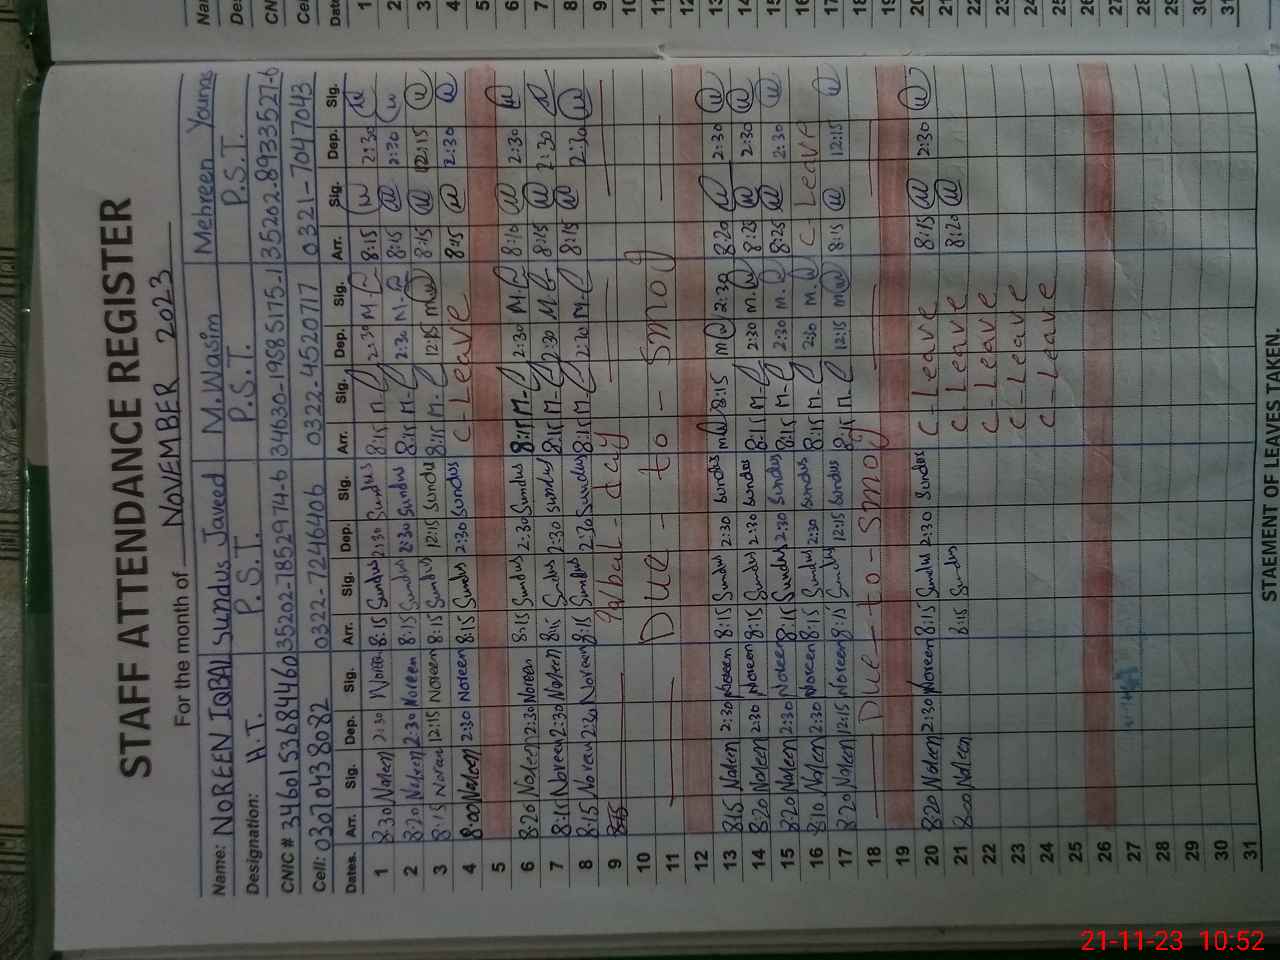 STAFF ATTENDANCE REGISTER
For the month of NOVEMBER 2023
Name: NOREEN IQBAL Sundus Javeed M.Wasim Mehreen Younas
Designation: H.T. P.S.T. P.S.T. P.S.T.
CNIC # 3460153684460 35202-7852974-6 34630-19585175-1 35202-8933527-6
Cell: 03070438082 0322-7246406 0322-4520717 0321-7047043
Dates. Arr. Sig. Dep. Sig. Arr. Sig. Dep. Sig. Arr. Sig. Dep. Sig. Arr. Sig. Dep. Sig.
1 8:30 Noreen 2:30 Noreen 8:15 Sundus 2:30 Sundus 8:15 M- 2:30 M- 8:15 2:30
2 8:20 Noreen 2:30 Noreen 8:15 Sundus 2:30 Sundus 8:15 M- 2:30 M- 8:15 2:30
3 8:15 Noreen 12:15 Noreen 8:15 Sundus 12:15 Sundus 8:15 M- 12:15 8:15 12:15
4 8:00 Noreen 2:30 Noreen 8:15 Sundus 2:30 Sundus C-Leave 8:15 2:30
5
6 8:20 Noreen 2:30 Noreen 8:15 Sundus 2:30 Sundus 8:15 M- 2:30 M- 8:10 2:30
7 8:15 Noreen 2:30 Noreen 8:15 Sundus 2:30 Sundus 8:15 M- 2:30 M- 8:15 2:30
8 8:15 Noreen 2:30 Noreen 8:15 Sundus 2:30 Sundus 8:15 M- 2:30 M- 8:15 2:30
9 8:15 Iqbal - day
10 Due - to - Smog
11
12
13 8:15 Noreen 2:30 Noreen 8:15 Sundus 2:30 Sundus 8:15 2:30 8:20 2:30
14 8:20 Noreen 2:30 Noreen 8:15 Sundus 2:30 Sundus 8:15 M- 2:30 M- 8:25 2:30
15 8:20 Noreen 2:30 Noreen 8:15 Sundus 2:30 Sundus 8:15 M- 2:30 M- 8:25 2:30
16 8:10 Noreen 2:30 Noreen 8:15 Sundus 2:30 Sundus 8:15 M- 2:30 M- C-Leave
17 8:20 Noreen 12:15 Noreen 8:15 Sundus 12:15 Sundus 8:15 M- 12:15 8:15 12:15
18 Due - to - Smog
19
20 8:20 Noreen 2:30 Noreen 8:15 Sundus 2:30 Sundus C-Leave 8:15 2:30
21 8:20 Noreen 8:15 Sundus C-Leave 8:20
22 C-Leave
23 C-Leave
24 C-Leave
25
26
27
28
29
30
31
STAEMENT OF LEAVES TAKEN.
21-11-23 10:52